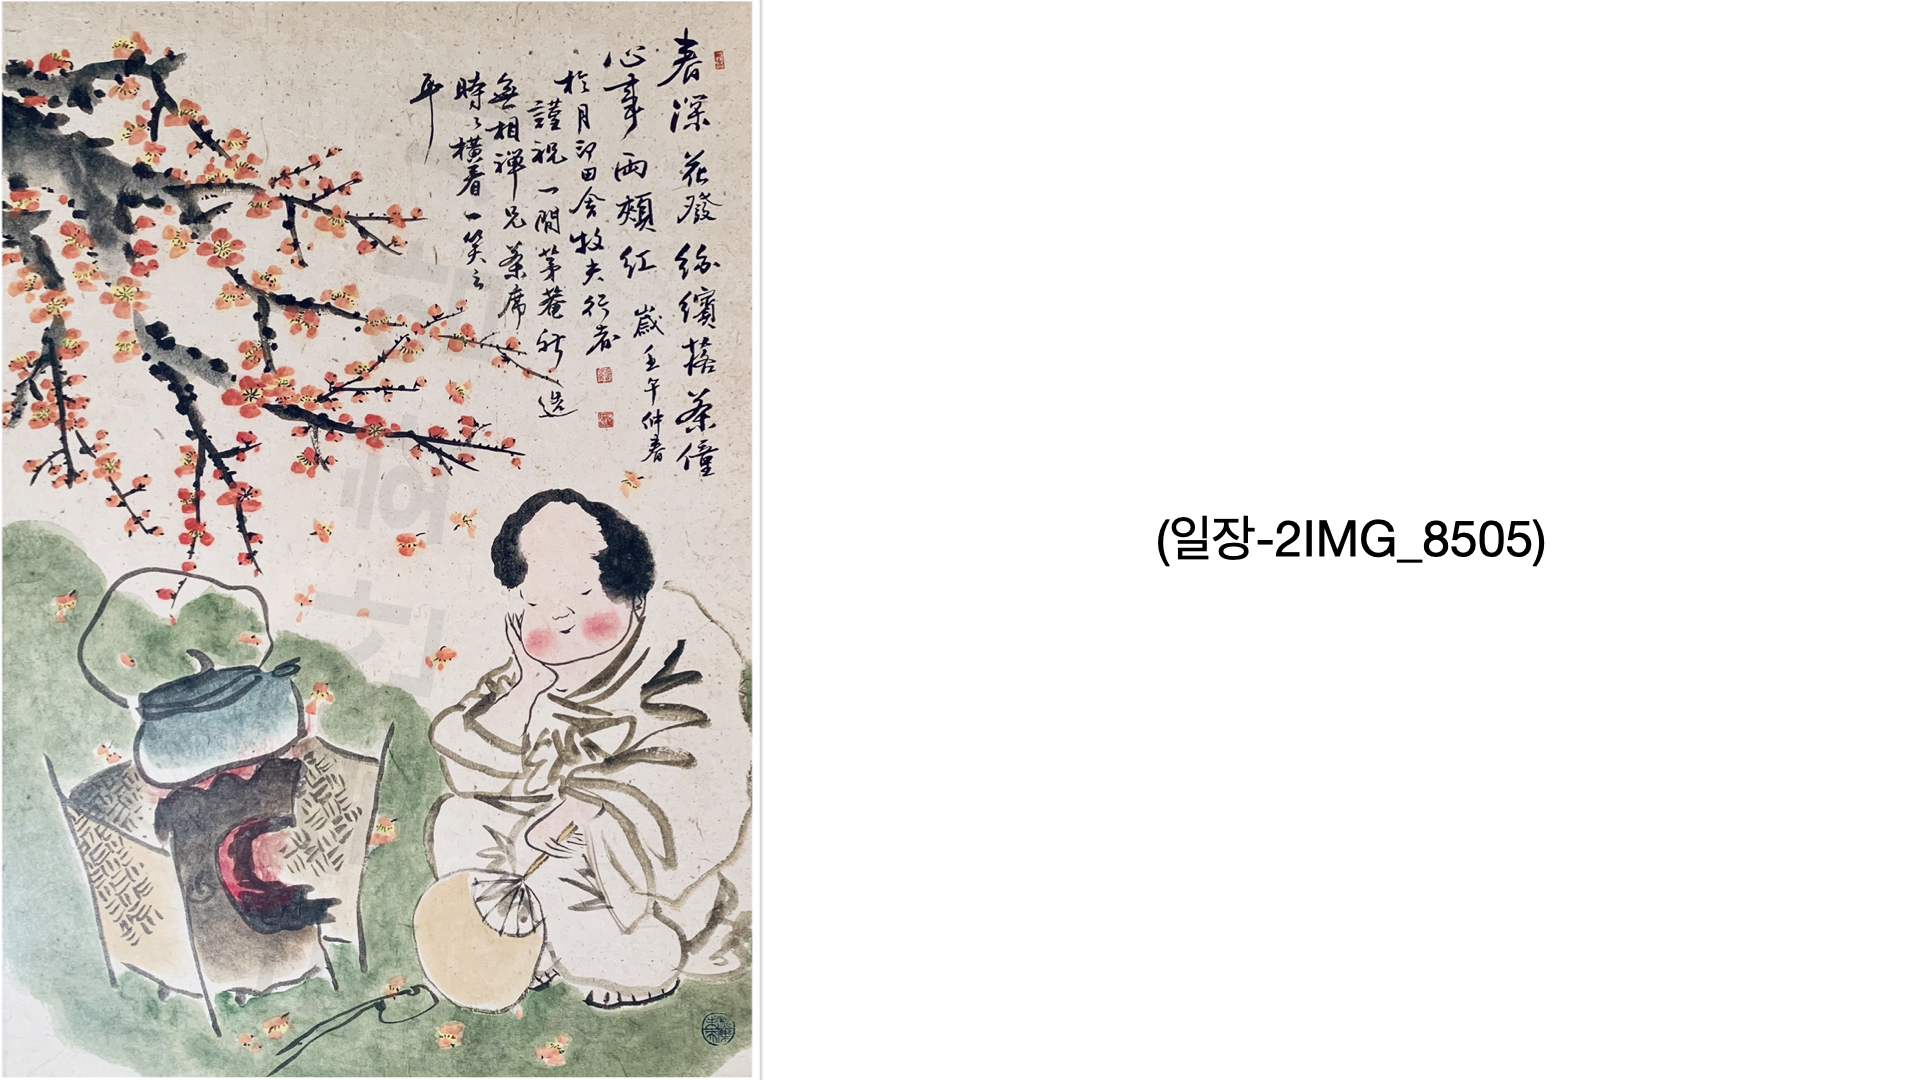 春深花發繽紛落茶僮
心事兩頰紅 歲壬午仲春
於月印田舍牧夫行者
謹祝一間茅菴所造
無相禪兄茶席
時々橫看一笑云
耳
(일장-2IMG_8505)